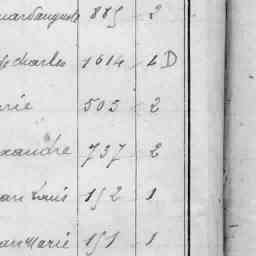 885 2
Charles 1614 4 D
rie 503 2
xandre 737 2
an Louis 152 1
an Marie 151 1